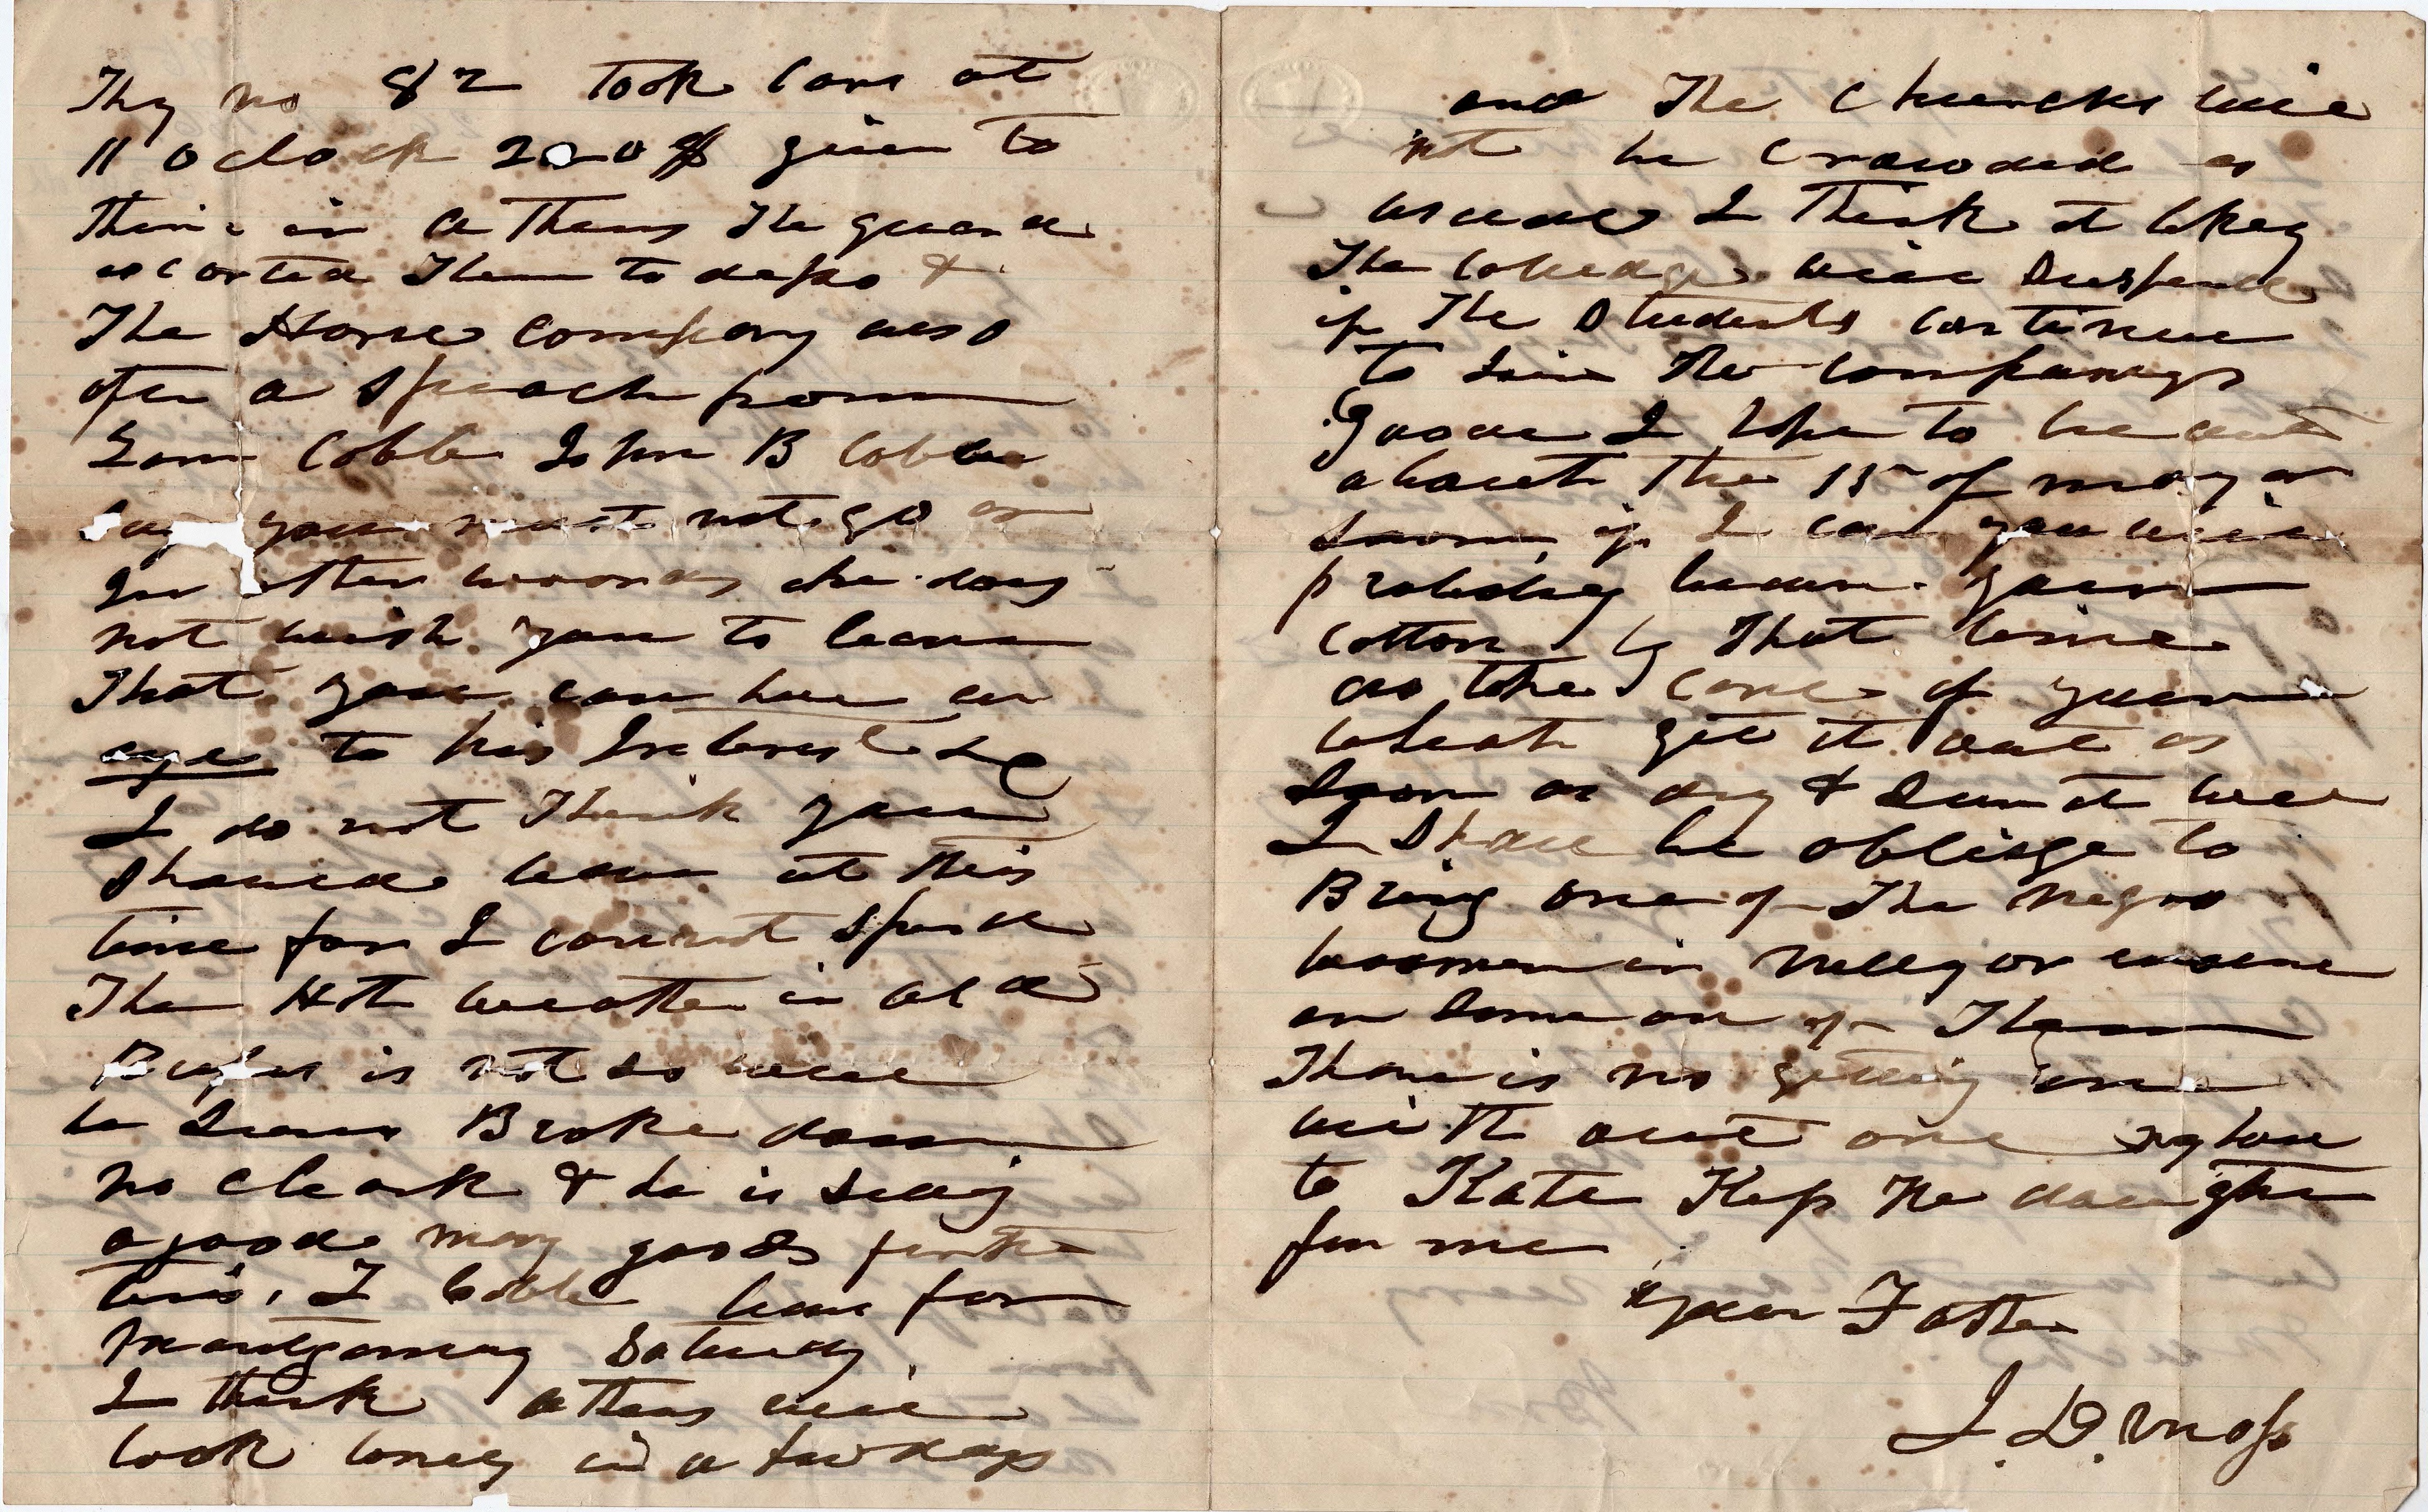 Thy no 82 took cars at
11 o clock 220$ given to
thim in Athens The guard
escorted Them to depo &
The Horse company also
after a speach from
Tom Cobb John B Cobb
say you must not go or
In other woords he does
not wish you to leave
That you can have an
eye to his Interest he
I do not Think you
should leave at this
time for I cannot spend
The Hot weather in Ala
Rufus is not so well
he seems Broke down
no cleark & he is selling
a good many goods for the
times, T Cobb leave for
Montgomery Saturday
I think Athens will
look lonely in a few days
and The Churches will
not be Crowded as
usual I Think it likely
The Colledge will suspend
if The Students continue
to Join the companys
Good I hope to be out
about The 15 of may or
sooner if I can you will
probably have your
cotton by That time
as take care of your
wheat get it out as
soon as dry & sun it well
I shall be oblidge to
Bring one of The negro
woomen in Milly or
or some one of Them
There is no getting one
with out one my love
to Kate Kiss The daughter
for me
your Father
J. D. Moss